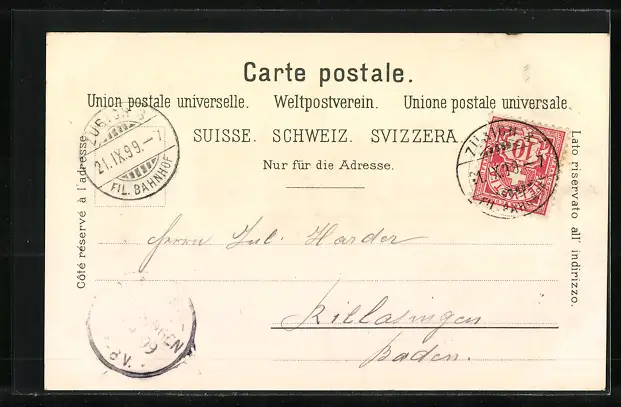 Carte postale.
Union postale universelle. Weltpostverein. Unione postale universale.
SUISSE. SCHWEIZ. SVIZZERA.
Nur für die Adresse.
Côté réservé à l'adresse.
Lato riservato all' indirizzo.
ZÜRICH 3
21.IX.99.–7
FIL. BAHNHOF
10
ZÜRICH
21.IX.99.–7
FIL. BAHNHOF
Herrn Jul. Harder
Rielasingen
Baden.
INGEN
99